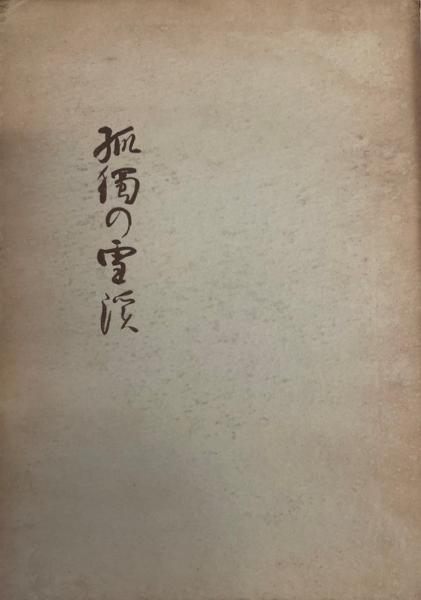 孤獨の雪渓